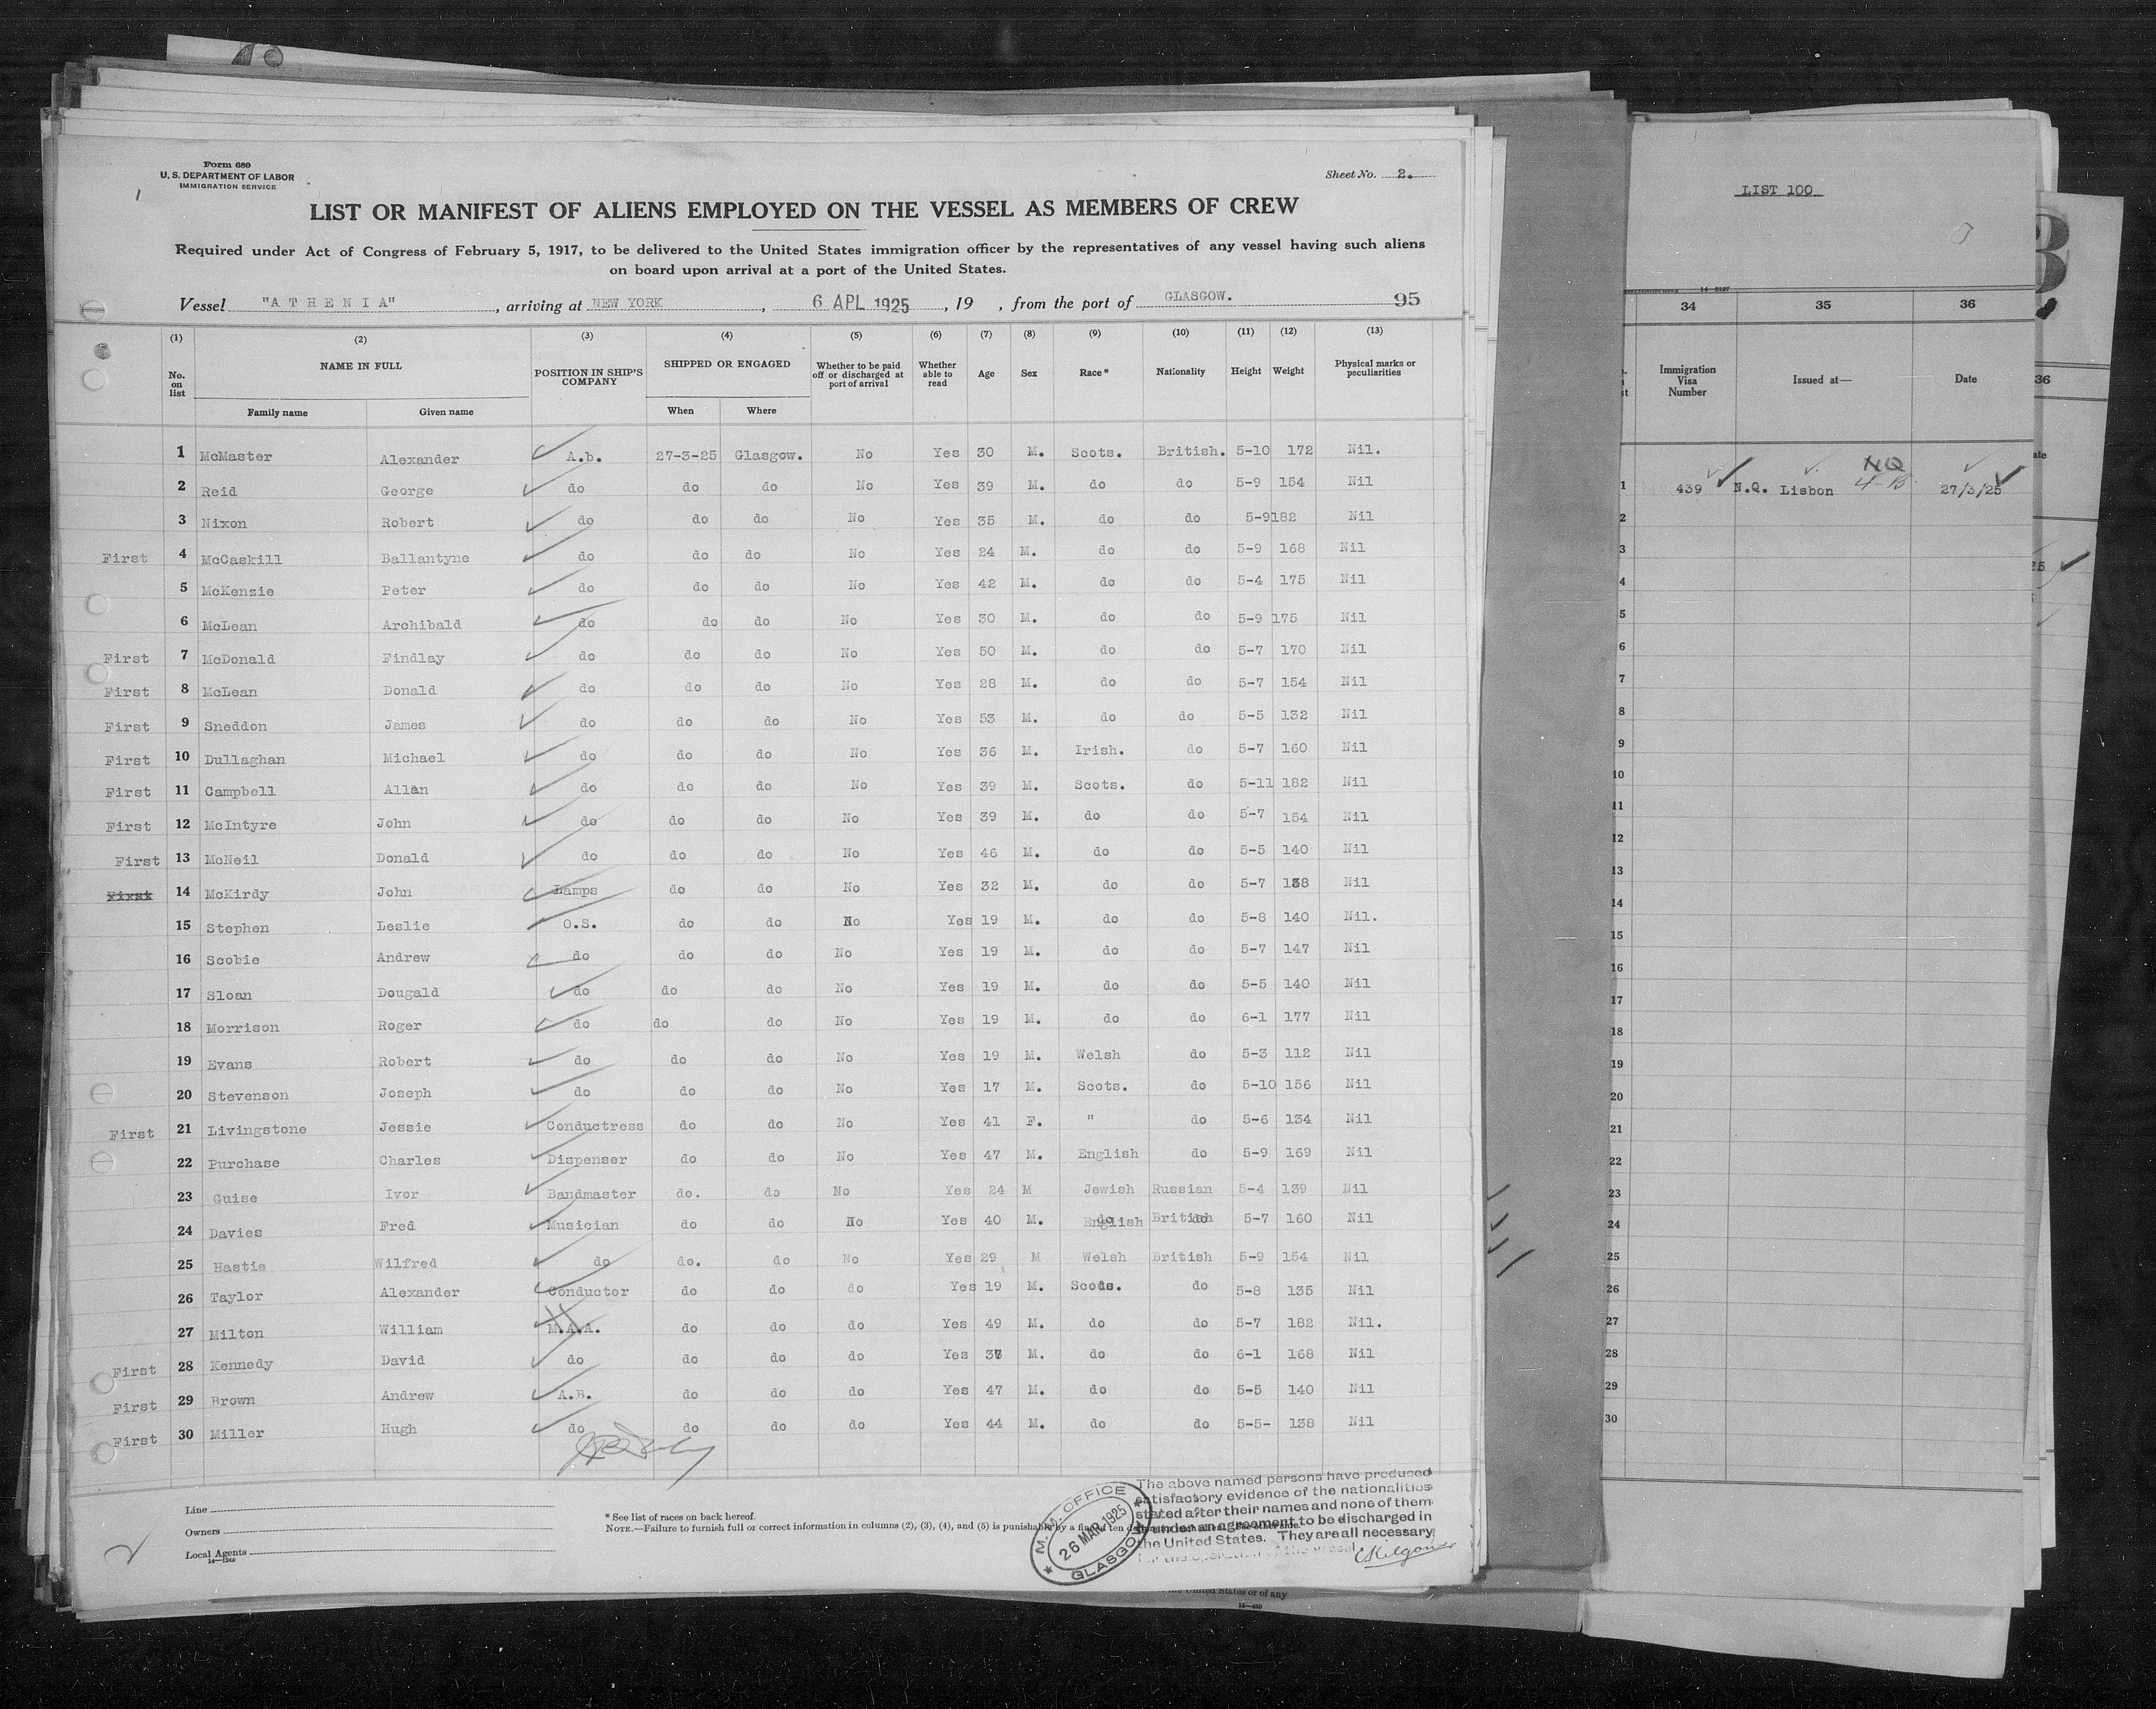 Form 680
U. S. DEPARTMENT OF LABOR
IMMIGRATION SERVICE
Sheet No. 2.
LIST OR MANIFEST OF ALIENS EMPLOYED ON THE VESSEL AS MEMBERS OF CREW
Required under Act of Congress of February 5, 1917, to be delivered to the United States immigration officer by the representatives of any vessel having such aliens
on board upon arrival at a port of the United States.
Vessel "A T H E N I A", arriving at NEW YORK, 6 APL 1925, 19 , from the port of GLASGOW. 95
(1) (2) (3) (4) (5) (6) (7) (8) (9) (10) (11) (12) (13)
No. on list NAME IN FULL POSITION IN SHIP'S COMPANY SHIPPED OR ENGAGED Whether to be paid off or discharged at port of arrival Whether able to read Age Sex Race* Nationality Height Weight Physical marks or peculiarities
Family name Given name When Where
1 McMaster Alexander A.b. 27-3-25 Glasgow. No Yes 30 M. Scots. British. 5-10 172 Nil.
2 Reid George do do do No Yes 39 M. do do 5-9 154 Nil
3 Nixon Robert do do do No Yes 35 M. do do 5-9 182 Nil
First 4 McCaskill Ballantyne do do do No Yes 24 M. do do 5-9 168 Nil
5 McKenzie Peter do do do No Yes 42 M. do do 5-4 175 Nil
6 McLean Archibald do do do No Yes 30 M. do do 5-9 175 Nil
First 7 McDonald Findlay do do do No Yes 50 M. do do 5-7 170 Nil
First 8 McLean Donald do do do No Yes 28 M. do do 5-7 154 Nil
First 9 Sneddon James do do do No Yes 53 M. do do 5-5 132 Nil
First 10 Dullaghan Michael do do do No Yes 36 M. Irish. do 5-7 160 Nil
First 11 Campbell Allan do do do No Yes 39 M. Scots. do 5-11 182 Nil
First 12 McIntyre John do do do No Yes 39 M. do do 5-7 154 Nil
First 13 McNeil Donald do do do No Yes 46 M. do do 5-5 140 Nil
First 14 McKirdy John Lamps do do No Yes 32 M. do do 5-7 138 Nil
15 Stephen Leslie O.S. do do No Yes 19 M. do do 5-8 140 Nil.
16 Scobie Andrew do do do No Yes 19 M. do do 5-7 147 Nil
17 Sloan Dougald do do do No Yes 19 M. do do 5-5 140 Nil
18 Morrison Roger do do do No Yes 19 M. do do 6-1 177 Nil
19 Evans Robert do do do No Yes 19 M. Welsh do 5-3 112 Nil
20 Stevenson Joseph do do do No Yes 17 M. Scots. do 5-10 156 Nil
First 21 Livingstone Jessie Conductress do do No Yes 41 F. " do 5-6 134 Nil
22 Purchase Charles Dispenser do do No Yes 47 M. English do 5-9 169 Nil
23 Guise Ivor Bandmaster do. do No Yes 24 M Jewish Russian 5-4 139 Nil
24 Davies Fred Musician do do No Yes 40 M. English British 5-7 160 Nil
25 Hastie Wilfred do do. do No Yes 29 M Welsh British 5-9 154 Nil
26 Taylor Alexander Conductor do do do Yes 19 M. Scots. do 5-8 135 Nil
27 Milton William M.A.A. do do do Yes 49 M. do do 5-7 182 Nil.
First 28 Kennedy David do do do do Yes M. do do 6-1 168 Nil
First 29 Brown Andrew A.B. do do do Yes 47 M. do do 5-5 140 Nil
First 30 Miller Hugh do do do do Yes 44 M. do do 5-5- 138 Nil
Line
Owners
Local Agents
14—1240
* See list of races on back hereof.
NOTE.—Failure to furnish full or correct information in columns (2), (3), (4), and (5) is punishable by a fine
M. M. OFFICE
26 MAR 1925
GLASGOW
The above named persons have produced
satisfactory evidence of the nationalities
stated after their names and none of them
is under an agreement to be discharged in
the United States. They are all necessary
for the operation of the vessel
CKilgour
the United States or of any
LIST 100
34 35 36
Immigration Visa Number Issued at— Date
1 439 N.Q. Lisbon NQ 27/3/25
2
3
4
5
6
7
8
9
10
11
12
13
14
15
16
17
18
19
20
21
22
23
24
25
26
27
28
29
30
36